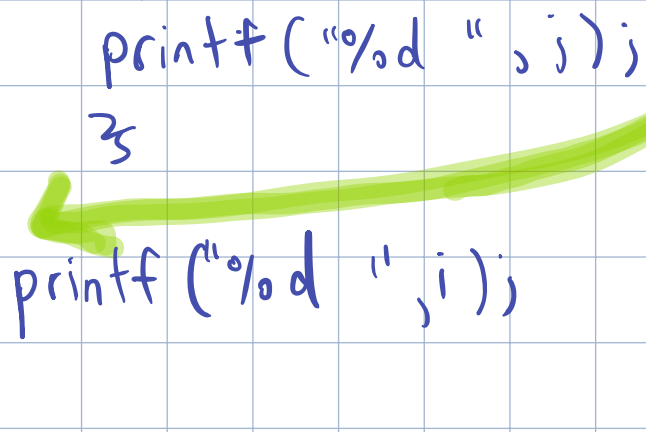 printf("%d ", j);
}
printf("%d ", i);